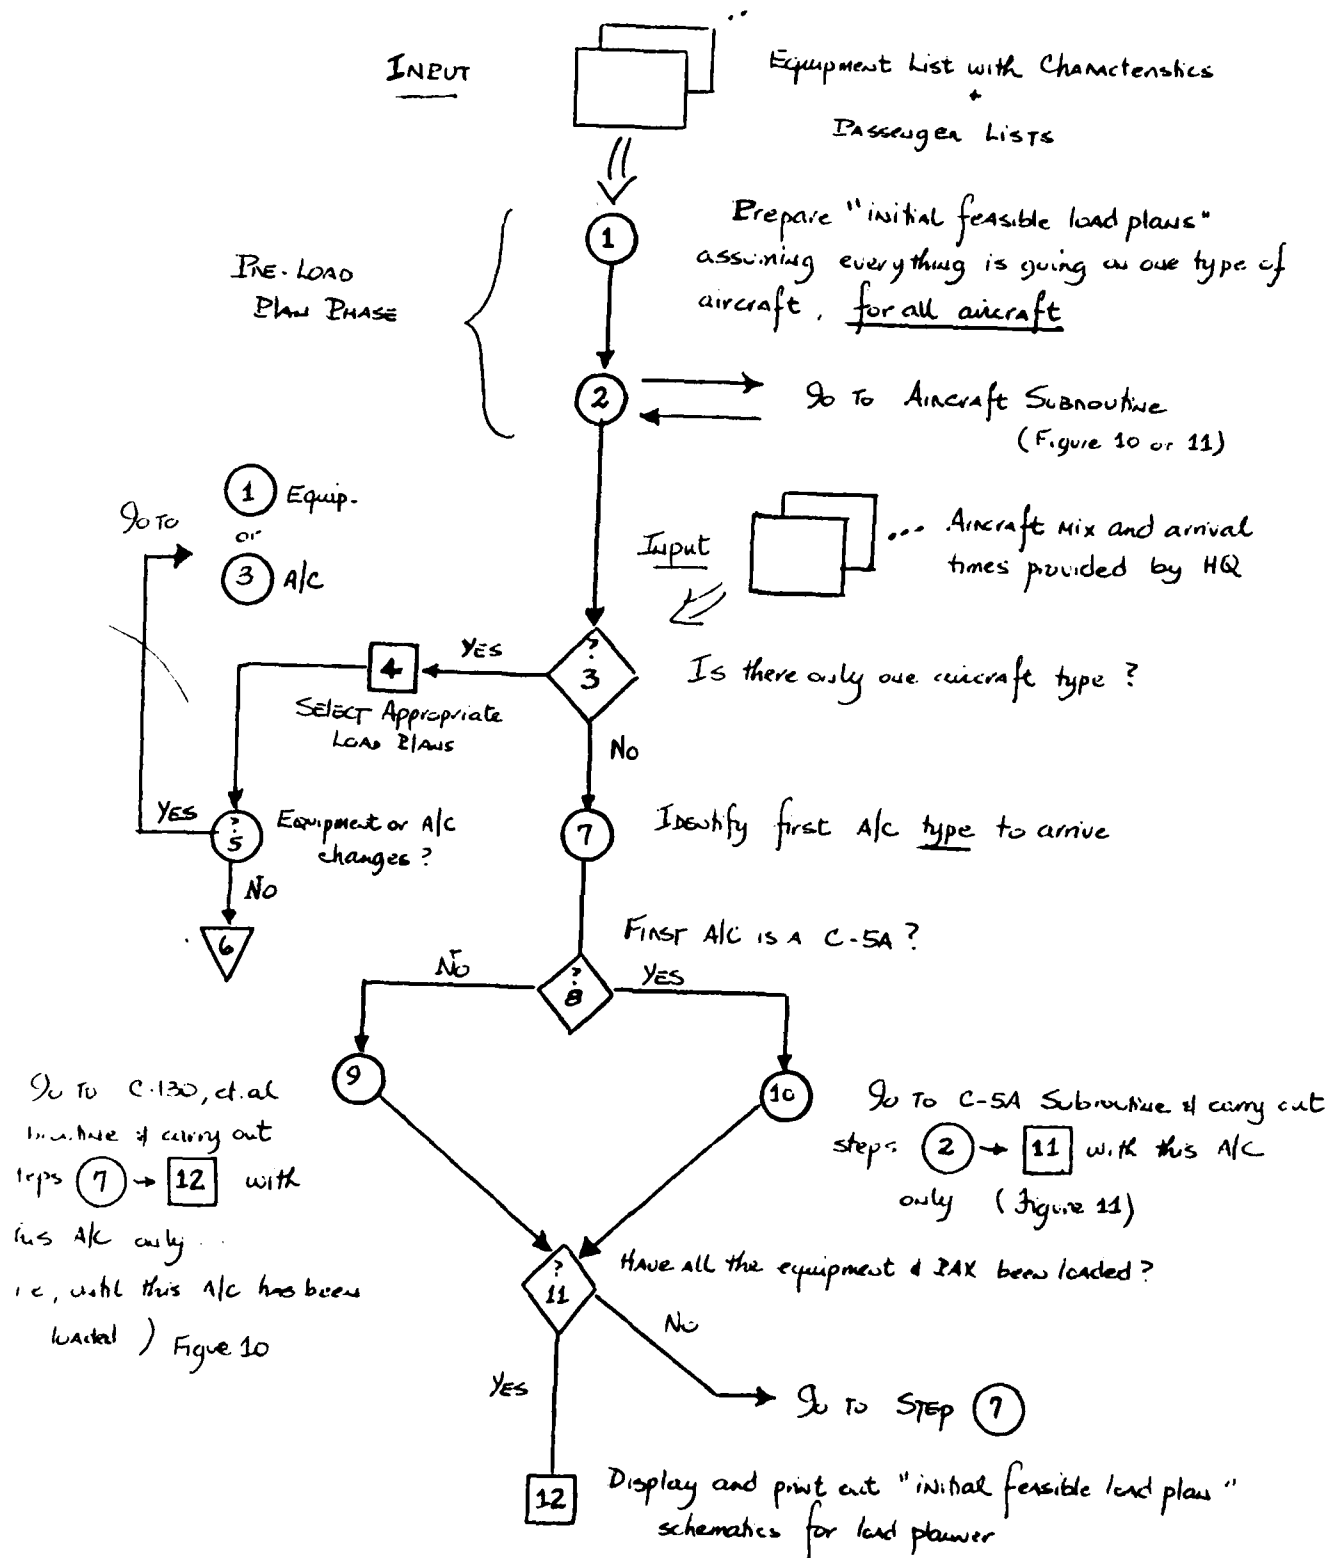 INPUT
Equipment List with Characteristics
+
Passenger Lists
Prepare "initial feasible load plans"
assuming everything is going on one type of
aircraft, for all aircraft
1
PRE-LOAD
PLAN PHASE
2
Go to Aircraft Subroutine
(Figure 10 or 11)
Go to
1 Equip.
or
3 A/C
Input
... Aircraft mix and arrival
times provided by HQ
YES
4
? 3
Is there only one aircraft type?
SELECT Appropriate
LOAD PLANS
No
YES
? 5
Equipment or A/C
changes?
7
Identify first A/C type to arrive
No
6
FIRST A/C IS A C-5A?
No
? 8
YES
9
10
Go to C-130, et. al
& carry out
7 → 12 with
A/C only...
until this A/C has been
loaded) Figure 10
Go to C-5A Subroutine & carry out
steps 2 → 11 with this A/C
only (Figure 11)
? 11
Have all the equipment & PAX been loaded?
No
YES
Go to STEP 7
12
Display and print out "initial feasible load plan"
schematics for load planner